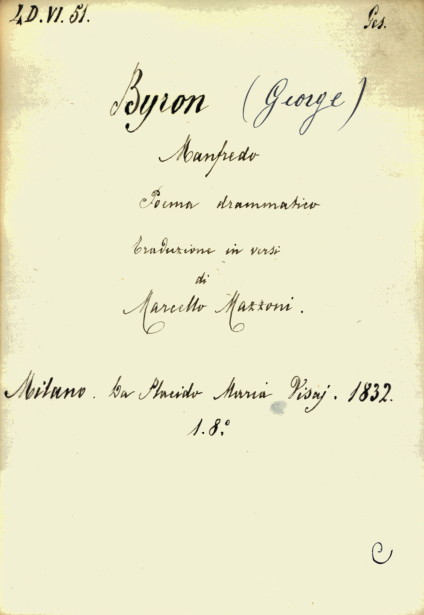 4.D.VI.51. Ges.
Byron (George)
Manfredo
Poema drammatico
Traduzione in versi
di
Marcello Mazzoni.
Milano. Da Placido Maria Visaj. 1832.
1.8.º
C